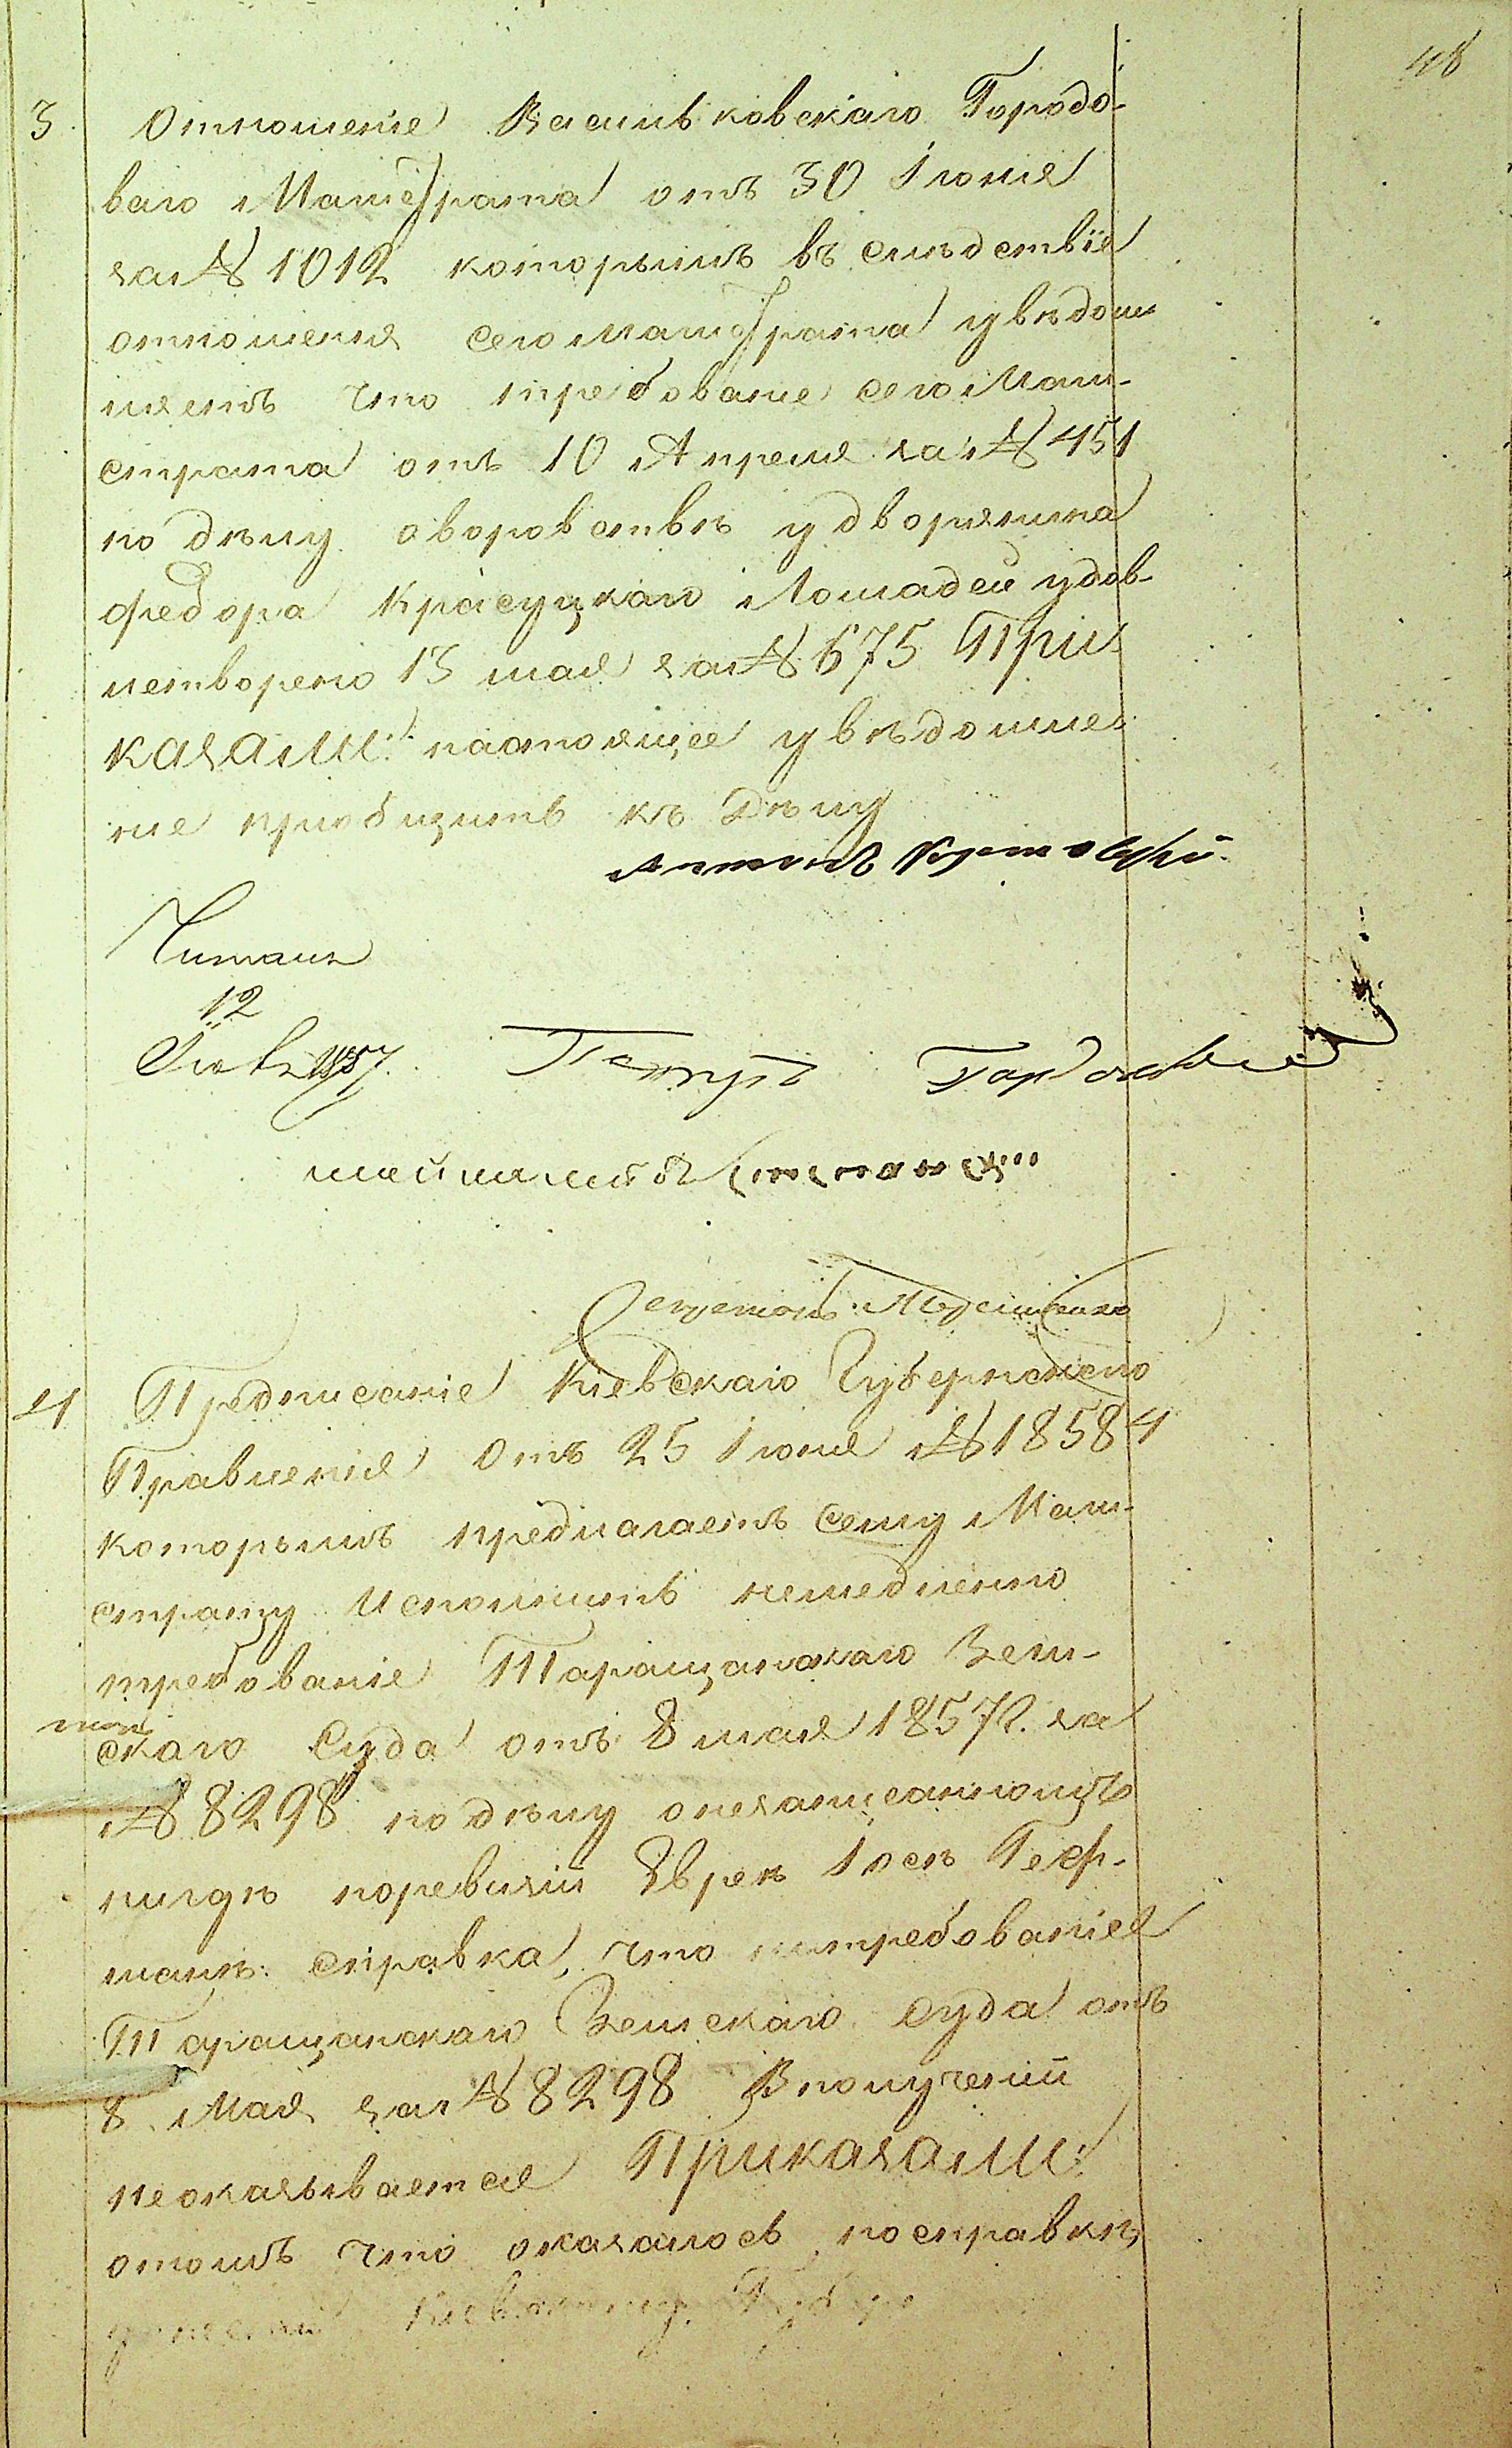 48
3 Отношеніе Васильковскаго Городо-
ваго Магистрата отъ 30 Іюня
за № 1012 которымъ въ слѣдствіе
отношенія сего Магистрата увѣдом
ляетъ что требованіе сего Маги-
страта отъ 10 Апреля за № 451
по дѣлу оворовствѣ у дворянина
Федора Красуцкаго Лошадей удов-
летворено 13 мая за № 675 При
казали: настоящее увѣдомле-
ніе пріобщить къ Дѣлу
Читалъ
12
Іюля 1857.
Секретарь
4 Предписаніе Кіевскаго Губернскаго
Правленія отъ 25 Іюня № 18584
которымъ предлагаетъ сему Маги-
страту исполнить немедленно
требованіе Таращанскаго Зем-
скаго Суда отъ 8 мая 1857 г. за
№ 8298 по дѣлу
Еврея
справка, что требованіе
Таращанскаго Земскаго Суда отъ
8 Мая за № 8298 Вполученіи
неоказывается Приказали:
отомъ что оказалось посправкѣ
Кіевскому Губер